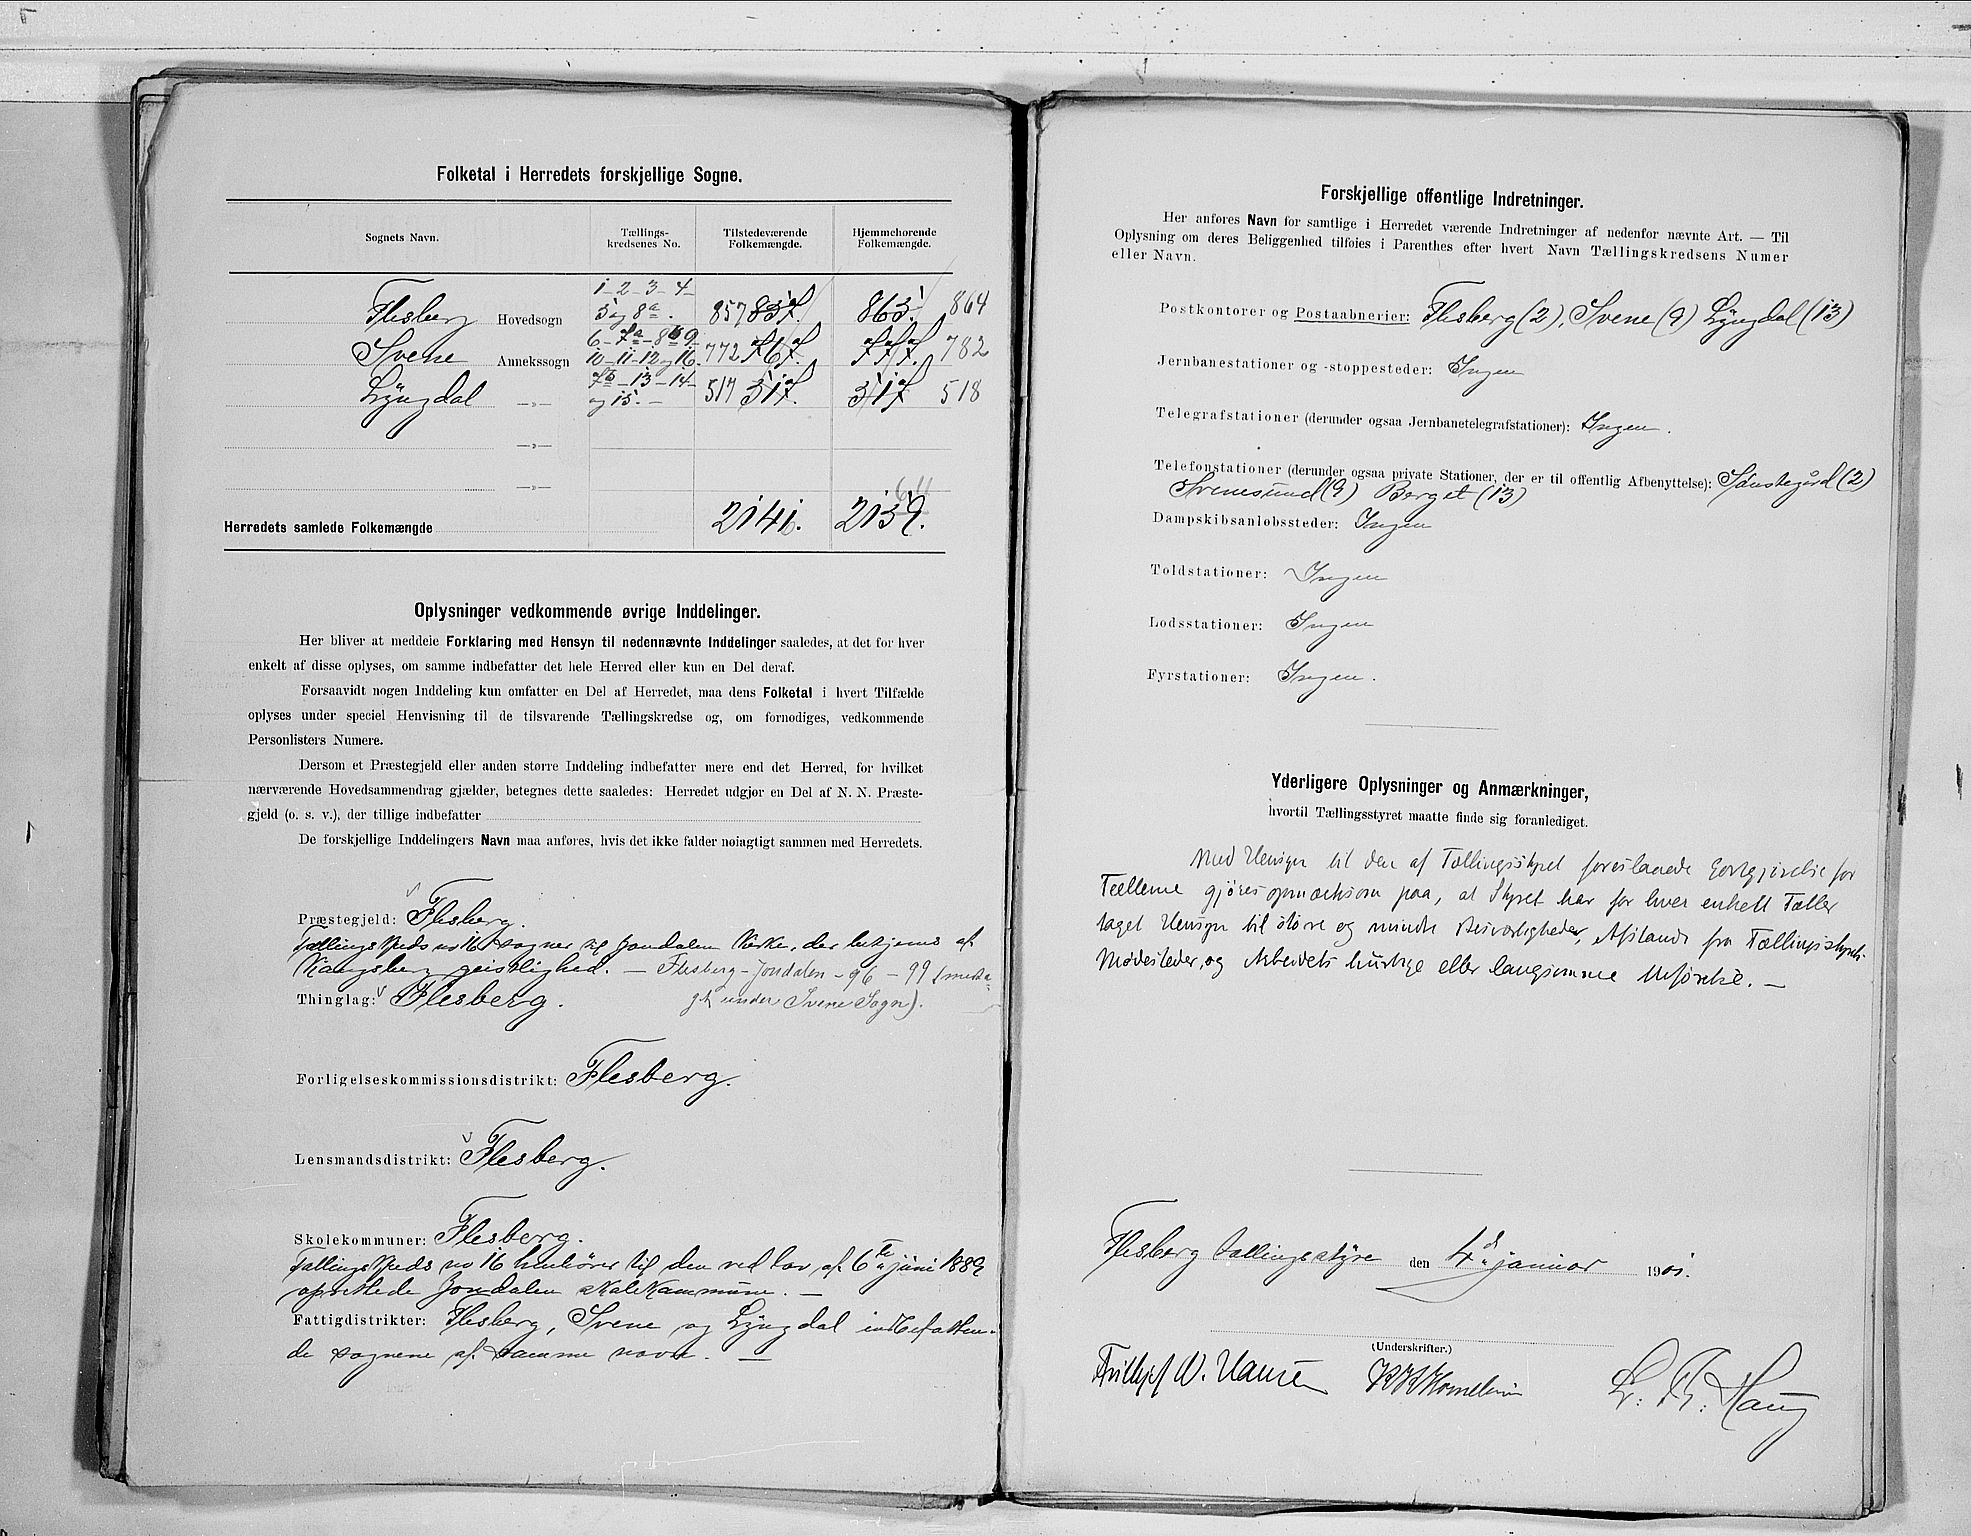 Folketal i Herredets forskjellige Sogne.
Sognets Navn. Tællings-kredsenes No. Tilstedeværende Folkemængde. Hjemmehørende Folkemængde.
1 - 2 - 3 - 4 -
Flesberg Hovedsogn 5 og 8a. 857 837. 863. 864
6 - 7a - 8b 9
Svene Annekssogn 10 - 11 - 12 og 16. 772 767. 777. 782
7b - 13 - 14 -
Lyngdal —»— og 15. — 517 517. 517 518
—»—
—»—
Herredets samlede Folkemængde 2141. 2159. 64
Oplysninger vedkommende øvrige Inddelinger.
Her bliver at meddele Forklaring med Hensyn til nedennævnte Inddelinger saaledes, at det for hver
enkelt af disse oplyses, om samme indbefatter det hele Herred eller kun en Del deraf.
Forsaavidt nogen Inddeling kun omfatter en Del af Herredet, maa dens Folketal i hvert Tilfælde
oplyses under speciel Henvisning til de tilsvarende Tællingskredse og, om fornødiges, vedkommende
Personlisters Numere.
Dersom et Præstegjeld eller anden større Inddeling indbefatter mere end det Herred, for hvilket
nærværende Hovedsammendrag gjælder, betegnes dette saaledes: Herredet udgjør en Del af N. N. Præste-
gjeld (o. s. v.), der tillige indbefatter
De forskjellige Inddelingers Navn maa anføres, hvis det ikke falder nøiagtigt sammen med Herredets.
Præstegjeld: Flesberg.
Tællingskreds no 16 sogner til Jondalen Kirke, der betjenes af
Kongsberg geistlighed. — Flesberg - Jondalen - 96 - 99 (medta-
Thinglag: Flesberg. get under Svene Sogn).
Forligelseskommissionsdistrikt: Flesberg.
Lensmandsdistrikt: Flesberg.
Skolekommuner: Flesberg.
Tællingskreds no 16 henhører til den ved lov af 6te juni 1889
oprettede Jondalen skolekommune. —
Fattigdistrikter: Flesberg, Svene og Lyngdal indbefatten-
de sognene af samme navn. —
Forskjellige offentlige Indretninger.
Her anføres Navn for samtlige i Herredet værende Indretninger af nedenfor nævnte Art. — Til
Oplysning om deres Beliggenhed tilføies i Parenthes efter hvert Navn Tællingskredsens Numer
eller Navn.
Postkontorer og Postaabnerier: Flesberg (2), Svene (9) Lyngdal (13)
Jernbanestationer og -stoppesteder: Ingen
Telegrafstationer (derunder ogsaa Jernbanetelegrafstationer): Ingen.
Telefonstationer (derunder ogsaa private Stationer, der er til offentlig Afbenyttelse): Tønstegård (2)
Svenesund (9) Berget (13)
Dampskibsanløbssteder: Ingen
Toldstationer: Ingen
Lodsstationer: Ingen
Fyrstationer: Ingen.
Yderligere Oplysninger og Anmærkninger,
hvortil Tællingsstyret maatte finde sig foranlediget.
Med Hensyn til den af Tællingsstyret foreslaaede Godtgjørelse for
Tællerne gjøres opmærksom paa, at Styret har for hver enkelt Tæller
taget Hensyn til større og mindre Besværligheder, Afstande fra Tællingsstyrets
Mødesteder, og Arbeidets hurtige eller langsomme Udførelse. —
Flesberg tællingsstyre den 4de januar 1901.
(Underskrifter.)
Fridtjof W. Hansen L. Th. Haug